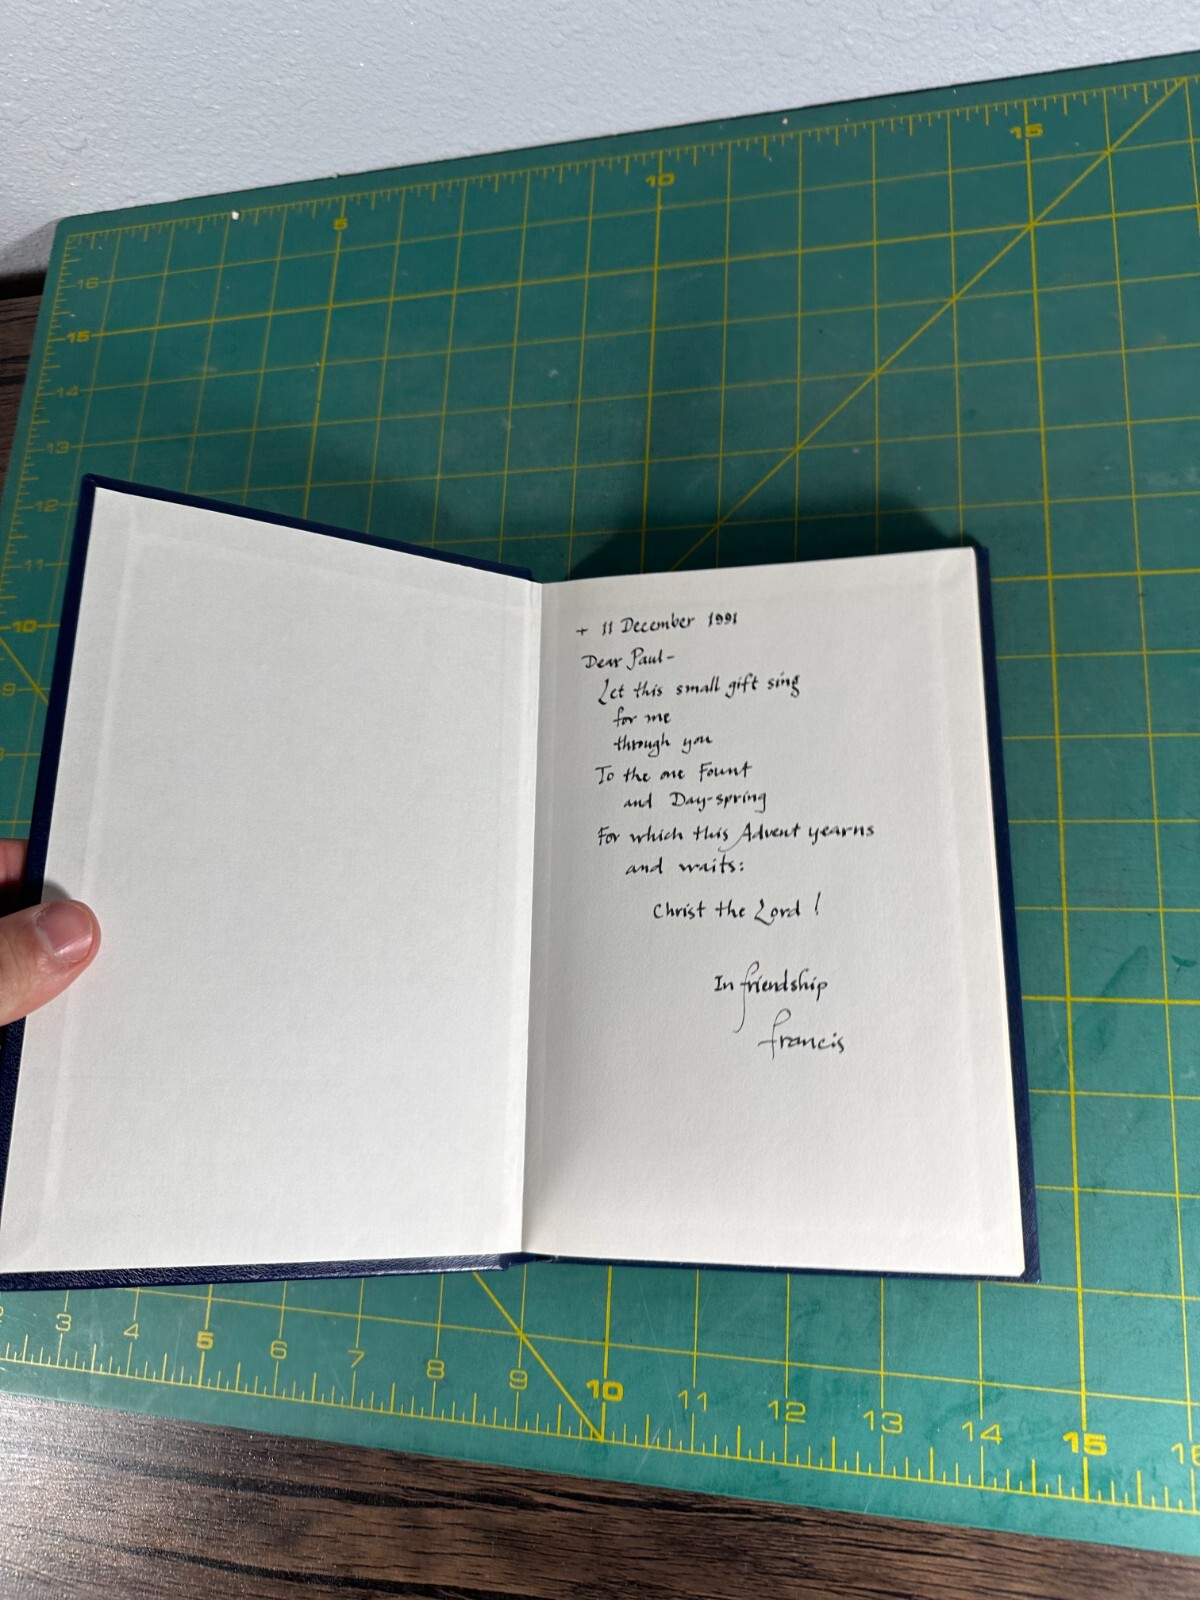 5
10
15
16
15
14
13
12
11
10
9
+ 11 December 1991
Dear Paul-
Let this small gift sing
for me
through you
To the one Fount
and Day-spring
For which this Advent yearns
and waits:
Christ the Lord!
In friendship
Francis
3 4 5 6 7 8 9 10 11 12 13 14 15